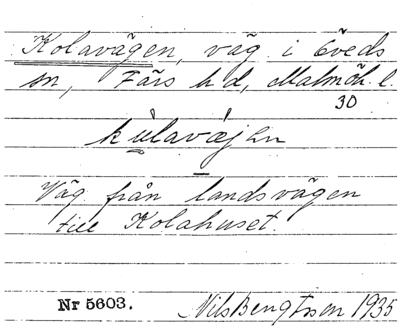 Kolavägen, väg i Öveds
sn, Färs hd, Malmöh. l.
30
kùlavæ̀jen
Väg från landsvägen
till Kolahuset.
Nr 5603. Nils Bengtsson 1935